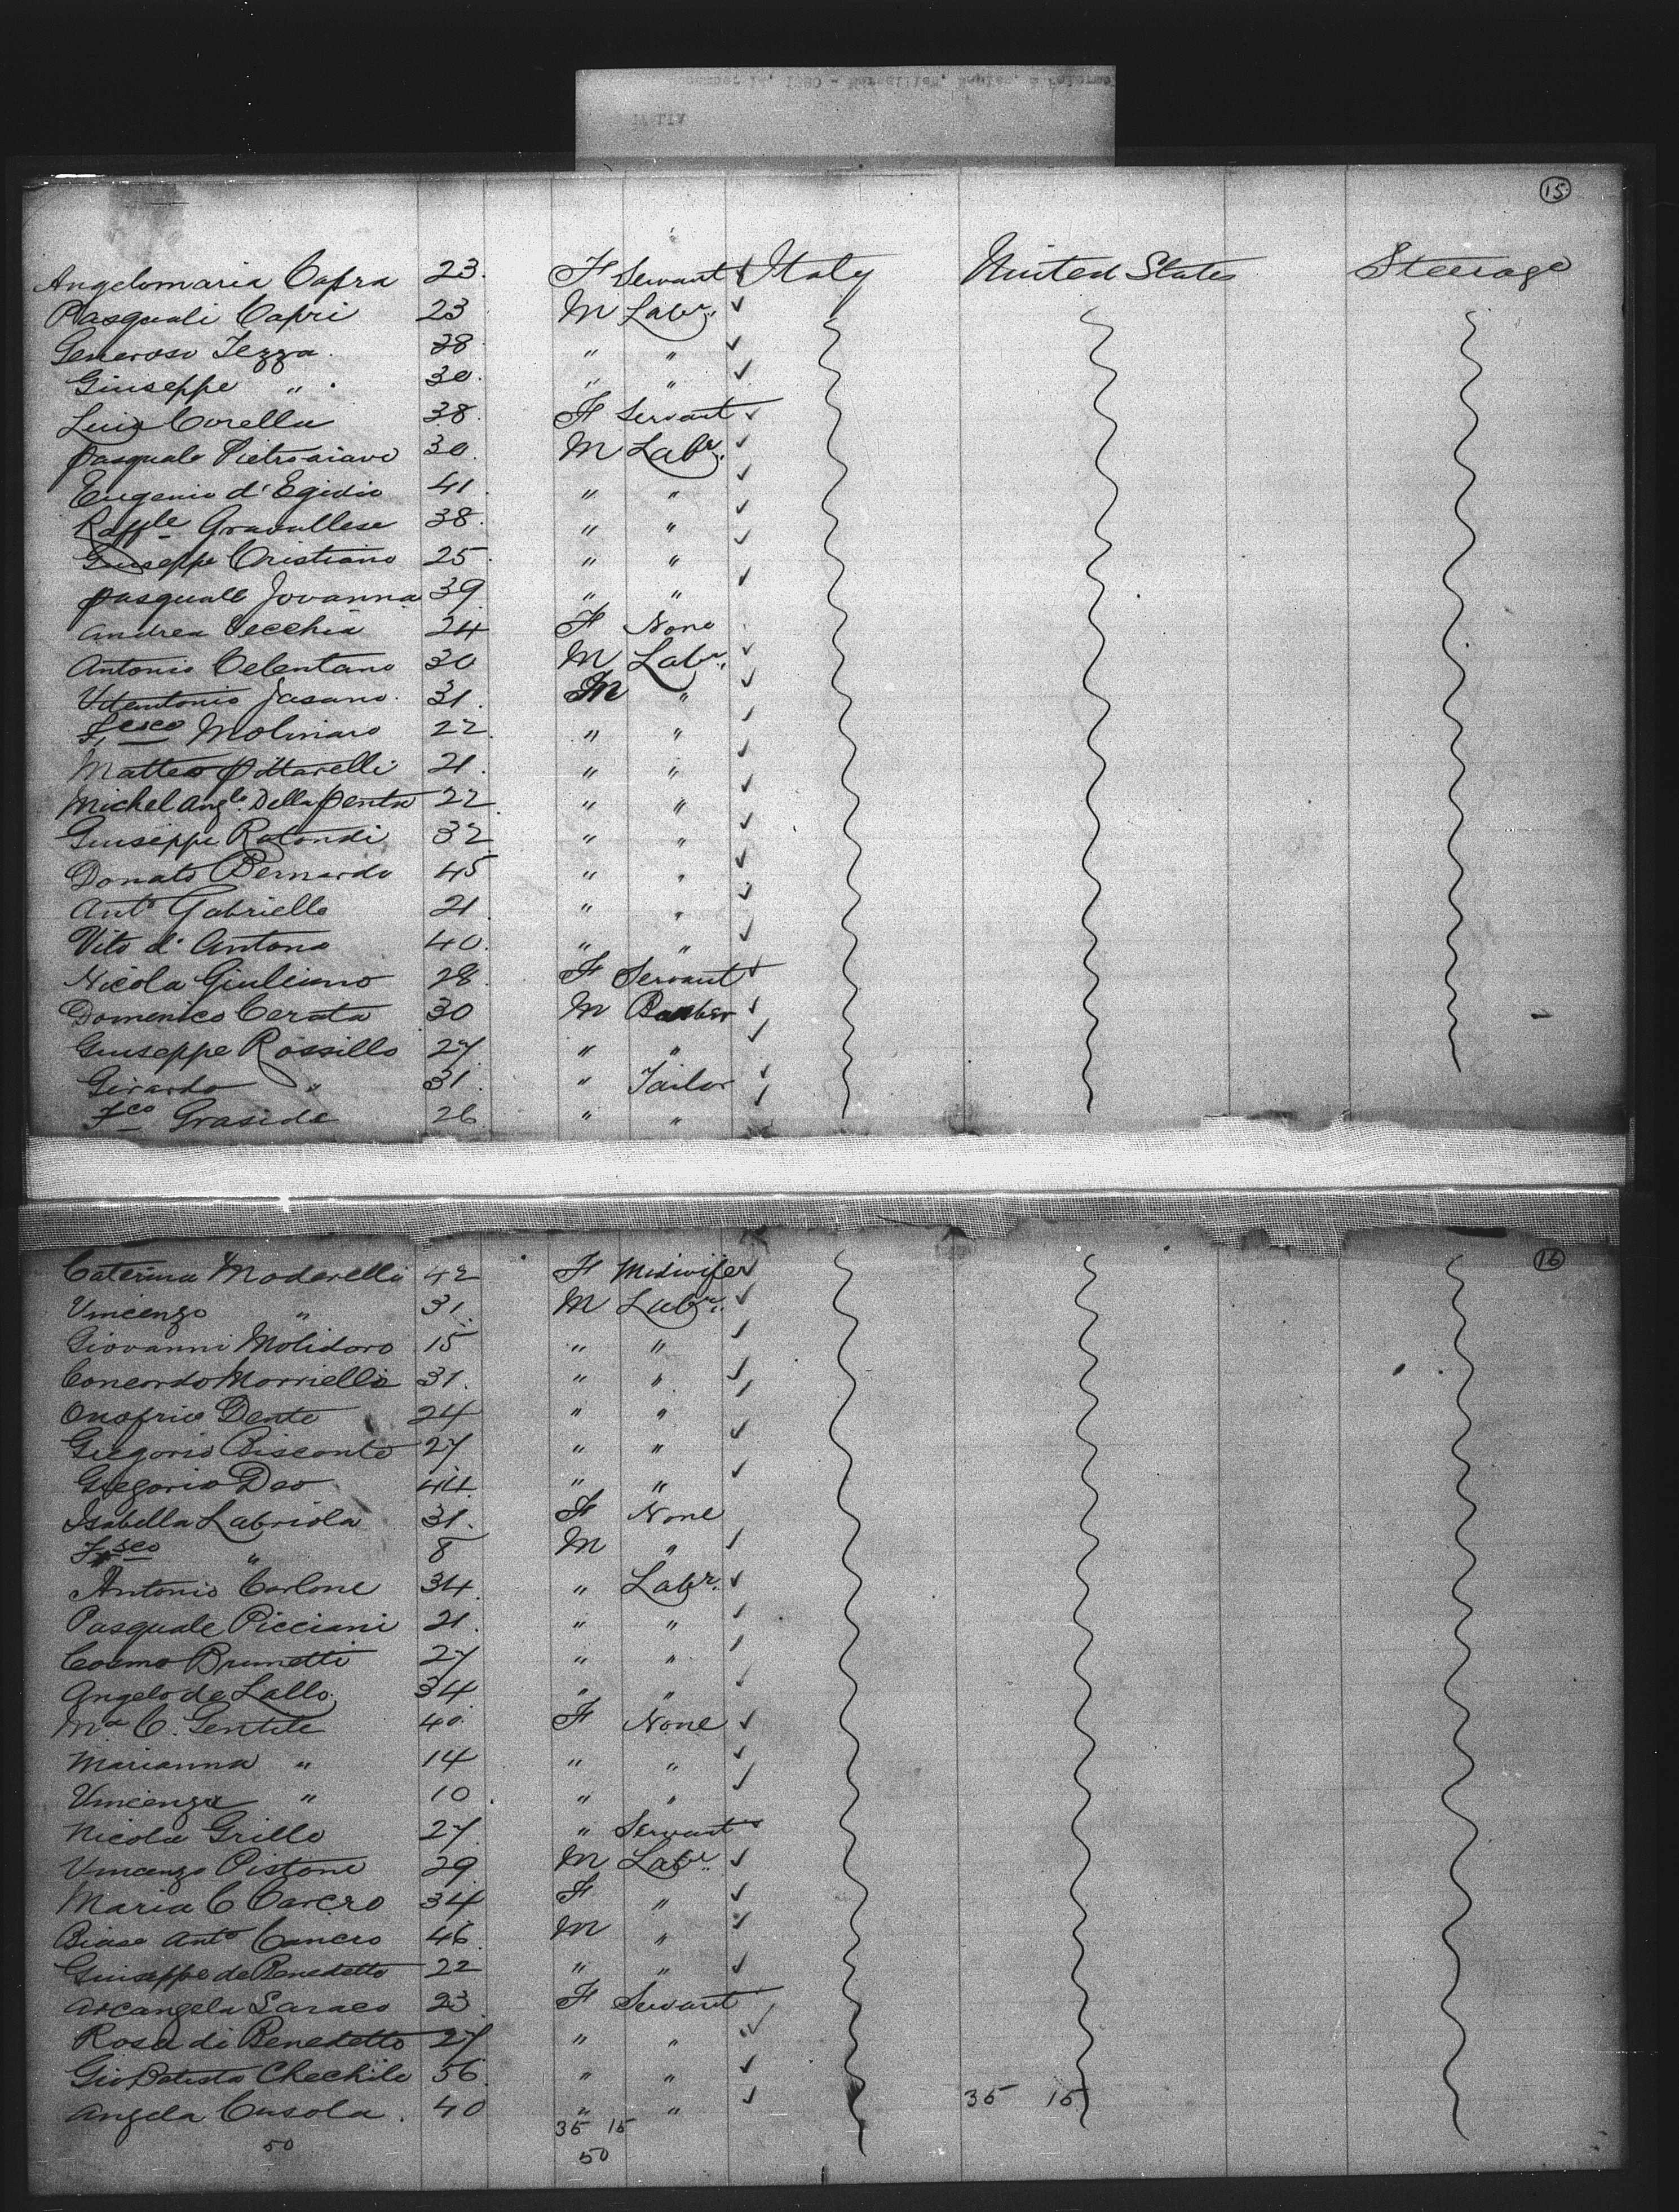 15
Angelomaria Capra 23. F Servant Italy United States Steerage
Pasquali Capri 23 M Labr.
Generoso Tezza. 38 " "
Giuseppe " 30. " "
Luia Corella 38. F Servant
Pasquale 30. M Labr.
Eugenio d'Egidio 41. " "
Raffle Gravallese 38. " "
Giuseppe Cristiano 25. " "
Pasquale Jovanna 39. " "
Andrea Vecchia 24 F None
Antonio Celentano 30 M Labr.
Vitantonio Fasano. 31. M "
Fcesco Molinaro 22. " "
Matteo Pittarelli 21. " "
Michel Anglo. Della Penta 22. " "
Giuseppe Rotondi 32 " "
Donato Bernardo 45 " "
Anto Gabriello 21 " "
Vito d'Antono 40. " "
Nicola Giuliano 28. F Servant
Domenico Cerata 30 M Barber
Giuseppe Rossillo 27. " "
Girardo " 31. " Tailor
Fco Graside 26. " "
16
Caterina Modarelli 42 F Midwifer
Vincenzo " 31. M Labr.
Giovanni Molidoro 15 " "
Concordo Morriello 31. " "
Onofrio Dente 24 " "
Gregorio Bisconte 27 " "
Gregorio Deo 44. " "
Isabella Labriola 31. F None
Frsco " 8 M "
Antonio Carlone 34. " Labr.
Pasquale Picciani 21. " "
Cosmo Brunetti 27 " "
Angelo de Lallo. 34 " "
Ma C. Gentile 40. F None
Marianna " 14 " "
Vincenza " 10. " "
Nicola Grillo 27. " Servant
Vincenzo Pistone 29 M Labr.
Maria C Carcro 34 F "
Biase Anto Cancro 46. M "
Giuseppe de Benedetto 22 " "
Arcangela Saraco 23. F Servant
Rosa di Benedetto 27. " "
Gio Batista Chechile 56. " "
Angela Cusola. 40 " "
35 15
35 15
50
50